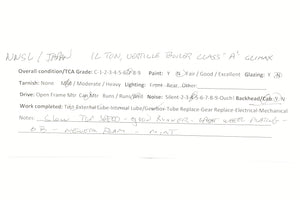 NWSL / JAPAN 12 TON, VERTICLE BOILER CLASS 'A' CLIMAX
Overall condition/TCA Grade: C-1-2-3-4-5-6-7-8-9 Paint: Y N Fair / Good / Excellent Glazing: Y N
Tarnish: None Mild / Moderate / Heavy Lighting: Front Rear Other
Drive: Open Frame Mtr Can Mtr Runs / Runs Well Noise: Silent 2-3-4-5-6-7-8-9-Ouch! Backhead/Cab: Y N
Work completed: Test External Lube Internal Lube/Gearbox Tune Replace Gear Replace Electrical-Mechanical
Notes: SLOW TOP SPEED - GOOD RUNNER -
OB - MINT